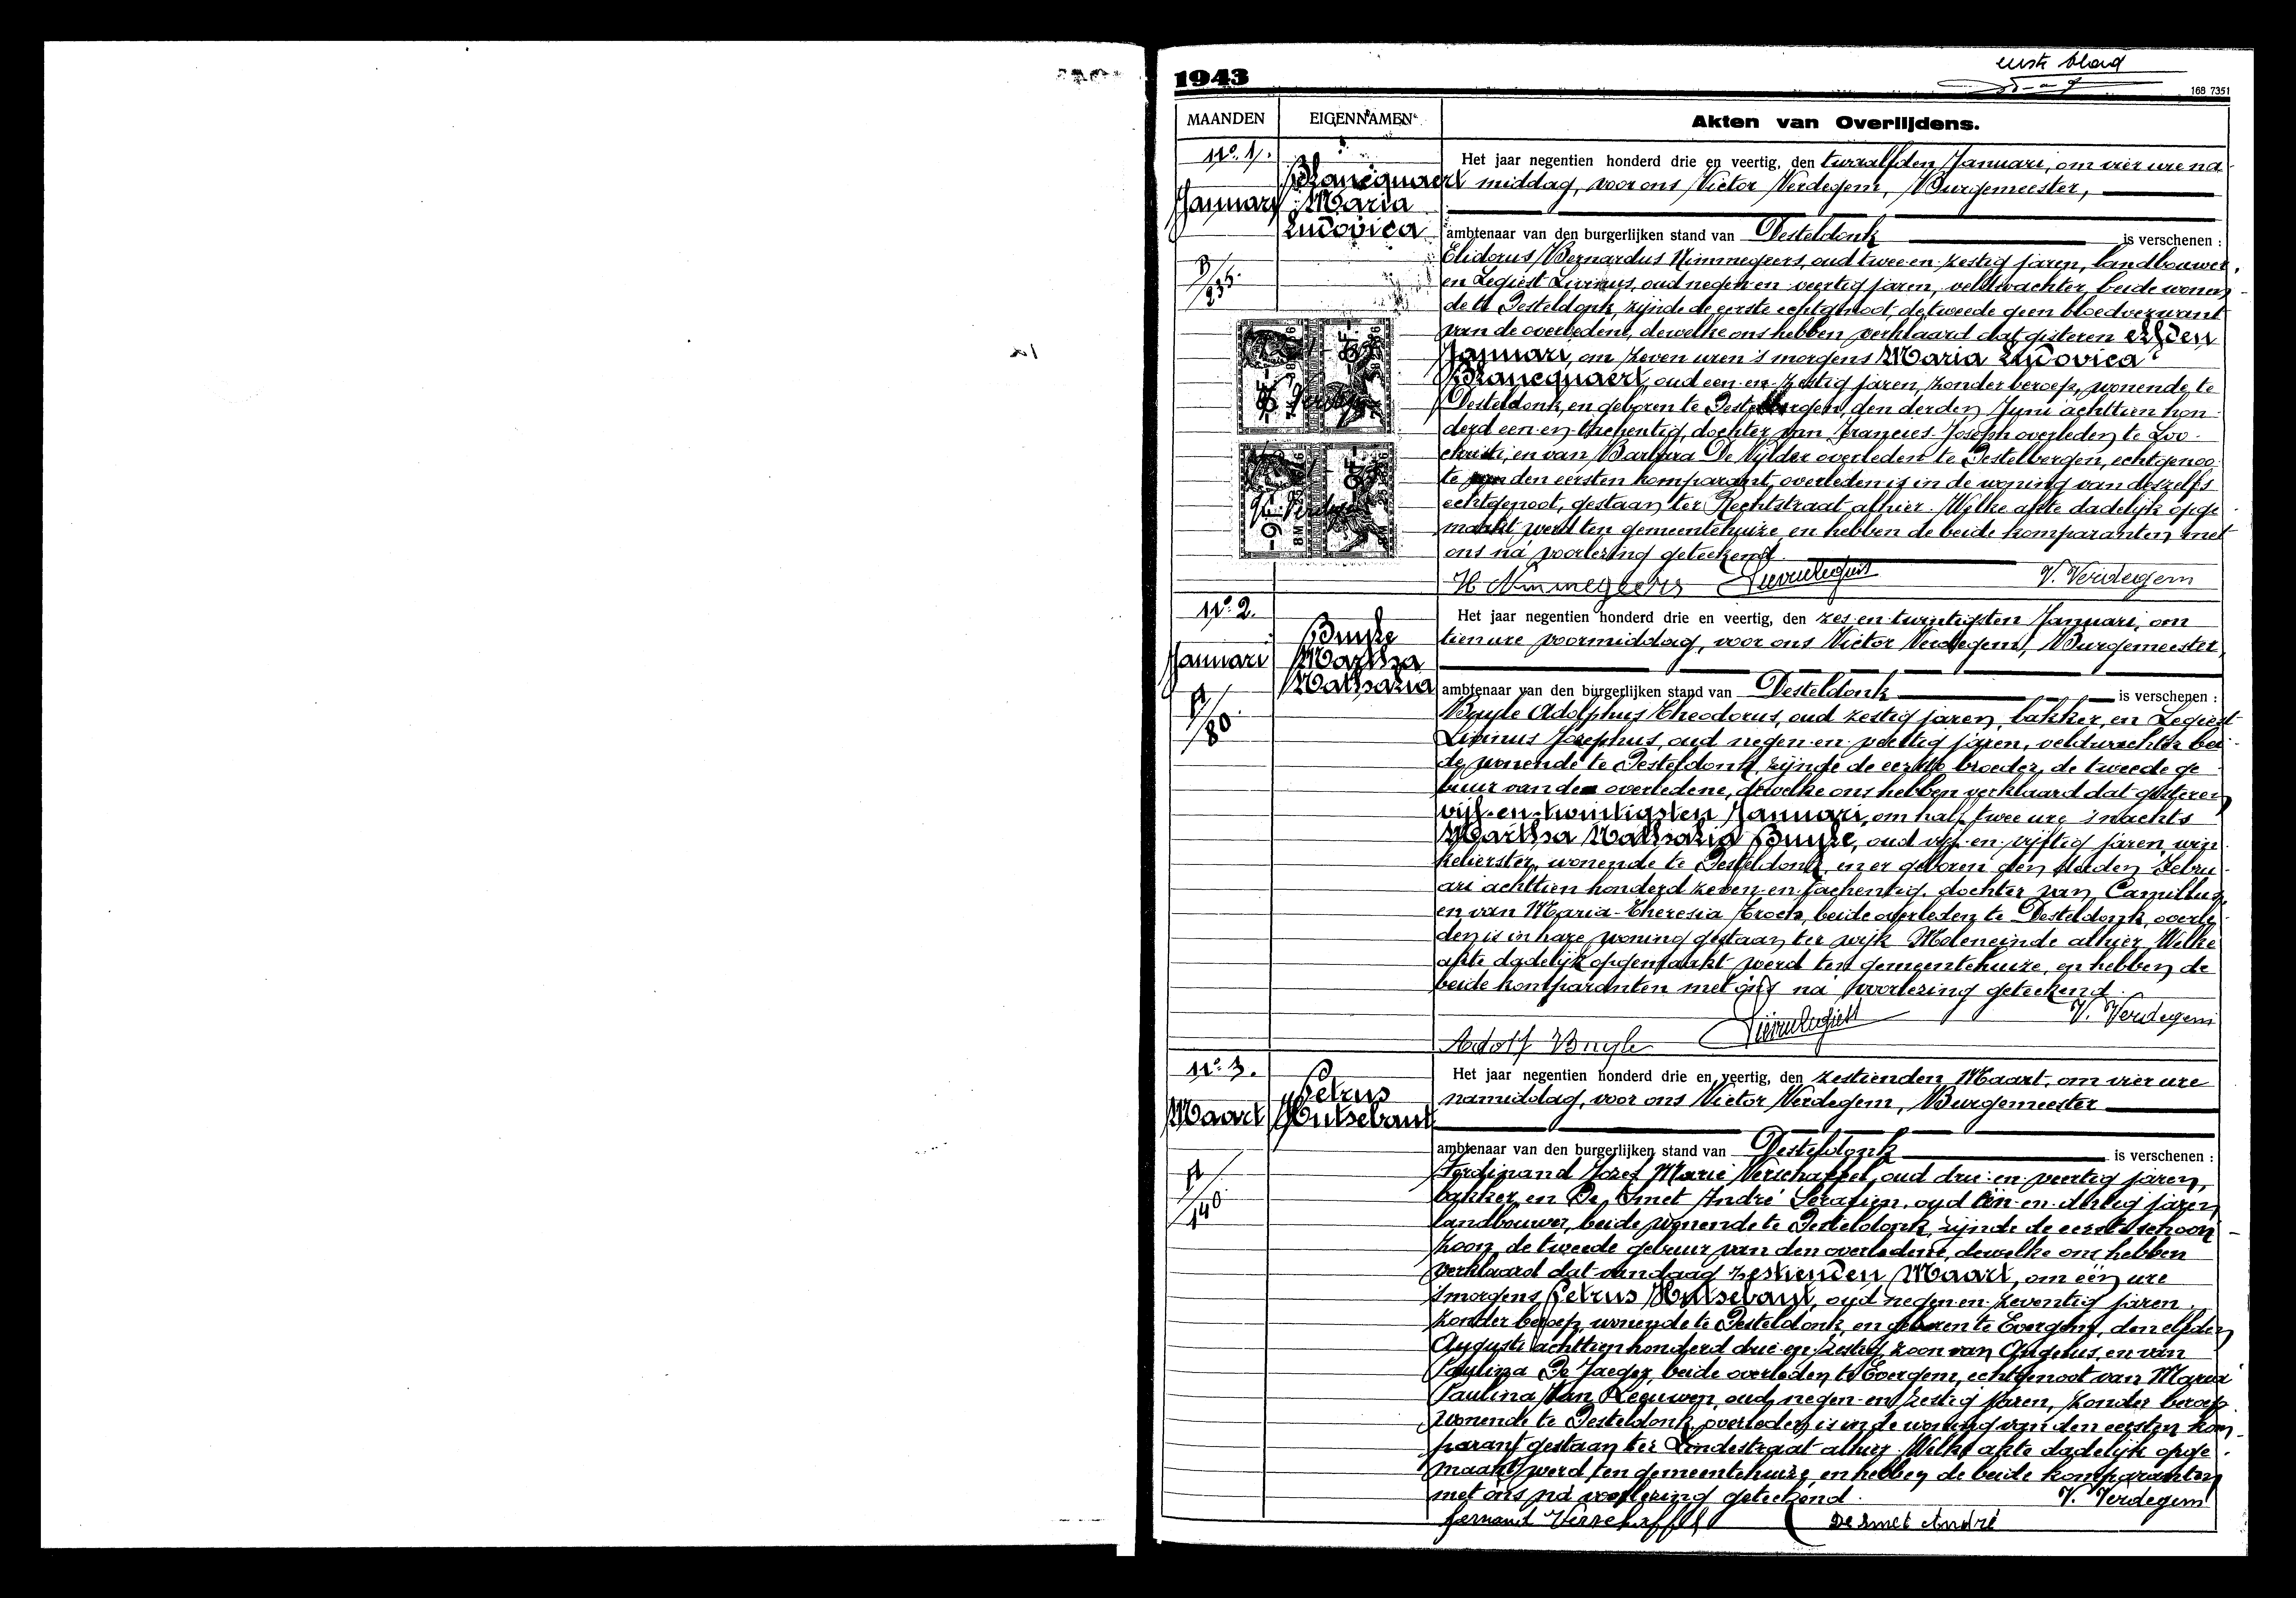 eerste blad
1943
168 7351
MAANDEN
EIGENNAMEN
Akten van Overlijdens.
No. 1.
Januari
Blancquaert
Maria
Ludovica
B/235
Het jaar negentien honderd drie en veertig, den twaalfden Januari, om vier ure na
middag, voor ons Victor Verdegem, Burgemeester,
ambtenaar van den burgerlijken stand van Desteldonk is verschenen :
Elidorus Bernardus Nimmegeers, oud twee-en-zestig jaren, landbouwer,
en Legiest Livinus, oud negen-en-veertig jaren, veldwachter, beide wonen-
de te Desteldonk, zijnde de eerste echtgenoot, de tweede geen bloedverwant
van de overledene, dewelke ons hebben verklaard dat gisteren elfden
Januari, om zeven uren 's morgens Maria Ludovica
Blancquaert, oud een-en-zestig jaren, zonder beroep, wonende te
Desteldonk, en geboren te Destelbergen, den derden Juni achttien hon-
derd een-en-tachentig, dochter van Francies-Joseph overleden te Loo-
christi, en van Barbara De Vylder overleden te Destelbergen, echtgenoo-
te van den eersten komparant, overleden is in de woning van deszelfs
echtgenoot, gestaan ter Rechtstraat alhier. Welke akte dadelijk opge-
maakt werd ten gemeentehuize, en hebben de beide komparanten met
ons na voorlezing geteekend.
H Nimmegeers Lievin Legiest V. Verdegem
No. 2.
Januari
Buyle
Martha
Nathalia
A/80
Het jaar negentien honderd drie en veertig, den zes-en-twintigsten Januari, om
tien ure voormiddag, voor ons Victor Verdegem, Burgemeester,
ambtenaar van den burgerlijken stand van Desteldonk is verschenen :
Buyle Adolphus Theodorus, oud zestig jaren, bakker, en Legiest
Livinus Josephus, oud negen-en-veertig jaren, veldwachter bei-
de wonende te Desteldonk, zijnde de eerste broeder, de tweede ge-
buur van de overledene, dewelke ons hebben verklaard dat gisteren
vijf-en-twintigsten Januari, om half twee ure 's nachts
Martha Nathalia Buyle, oud vijf-en-vijftig jaren, win-
kelierster, wonende te Desteldonk, en er geboren den derden Febru-
ari achttien honderd zeven-en-tachentig, dochter van Camillus,
en van Maria-Theresia Troch, beide overleden te Desteldonk, overle-
den is in hare woning gestaan ter wijk Moleneinde alhier. Welke
akte dadelijk opgemaakt werd ten gemeentehuize, en hebben de
beide komparanten met ons na voorlezing geteekend.
Adolf Buyle Lievin Legiest V. Verdegem
No. 3.
Maart
Petrus
Hutsebaut
A/140
Het jaar negentien honderd drie en veertig, den zestienden Maart, om vier ure
namiddag, voor ons Victor Verdegem, Burgemeester
ambtenaar van den burgerlijken stand van Desteldonk is verschenen :
Ferdinand Jozef Marie Verschaffel, oud drie-en-veertig jaren,
bakker, en De Smet André Serafien, oud één-en-dertig jaren,
landbouwer, beide wonende te Desteldonk, zijnde de eerste schoon-
zoon, de tweede gebuur van den overledene, dewelke ons hebben
verklaard dat vandaag zestienden Maart, om één ure
's morgens Petrus Hutsebaut, oud negen-en-zeventig jaren,
zonder beroep, wonende te Desteldonk, en geboren te Evergem, den elfden
Augusti achttien honderd drie-en-zestig, zoon van Angelus, en van
Paulina De Jaeger, beide overleden te Evergem, echtgenoot van Maria
Paulina Van Leeuwen, oud negen-en-zestig jaren, zonder beroep
wonende te Desteldonk, overleden is in de woning van den eersten kom-
parant gestaan ter Lindestraat alhier. Welke akte dadelijk opge-
maakt werd ten gemeentehuize, en hebben de beide komparanten
met ons na voorlezing geteekend.
V. Verdegem
Fernand Verschaffel De Smet André